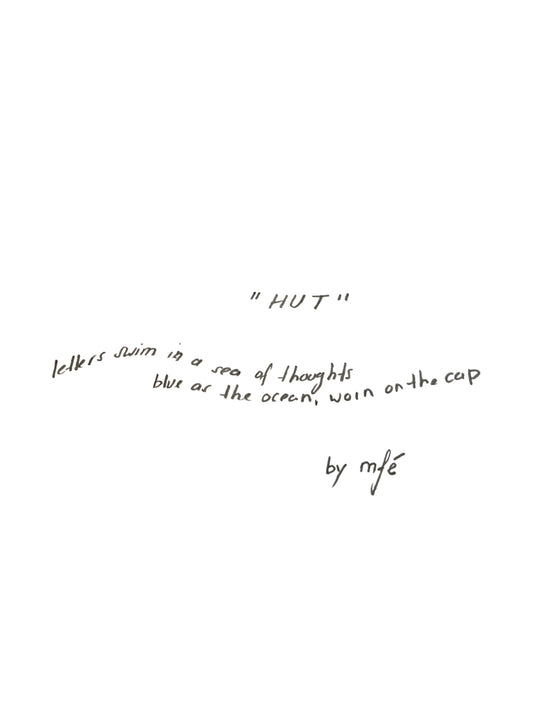 "HUT"
letters swim in a sea of thoughts
blue as the ocean, worn on the cap
by mfé